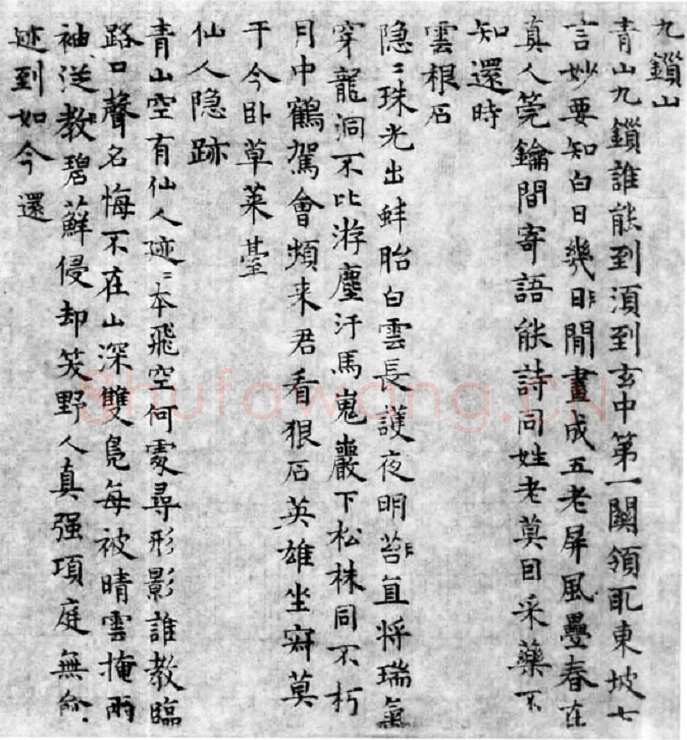 九鎖山
青山九鎖誰能到須到玄中第一關領取東坡七
言妙要知白日幾間畫成五老屏風疊春在
真人筦鑰間寄語能詩同姓老莫因采藥不
知還時
雲根石
隐〻珠光出蚌胎白雲長護夜明苔直將瑞氣
穿龍洞不比游塵汙馬嵬巖下松株同不朽
月中鶴駕會頻来君看狠石英雄坐寂莫
于今卧草萊臺
仙人隐跡
青山空有仙人迹〻本飛空何處尋形影誰教臨
路口聲名悔不在山深雙鳧每被晴雲掩兩
袖從教碧蘚侵却笑野人真强項庭無
迹到如今還
Shufawang.CN